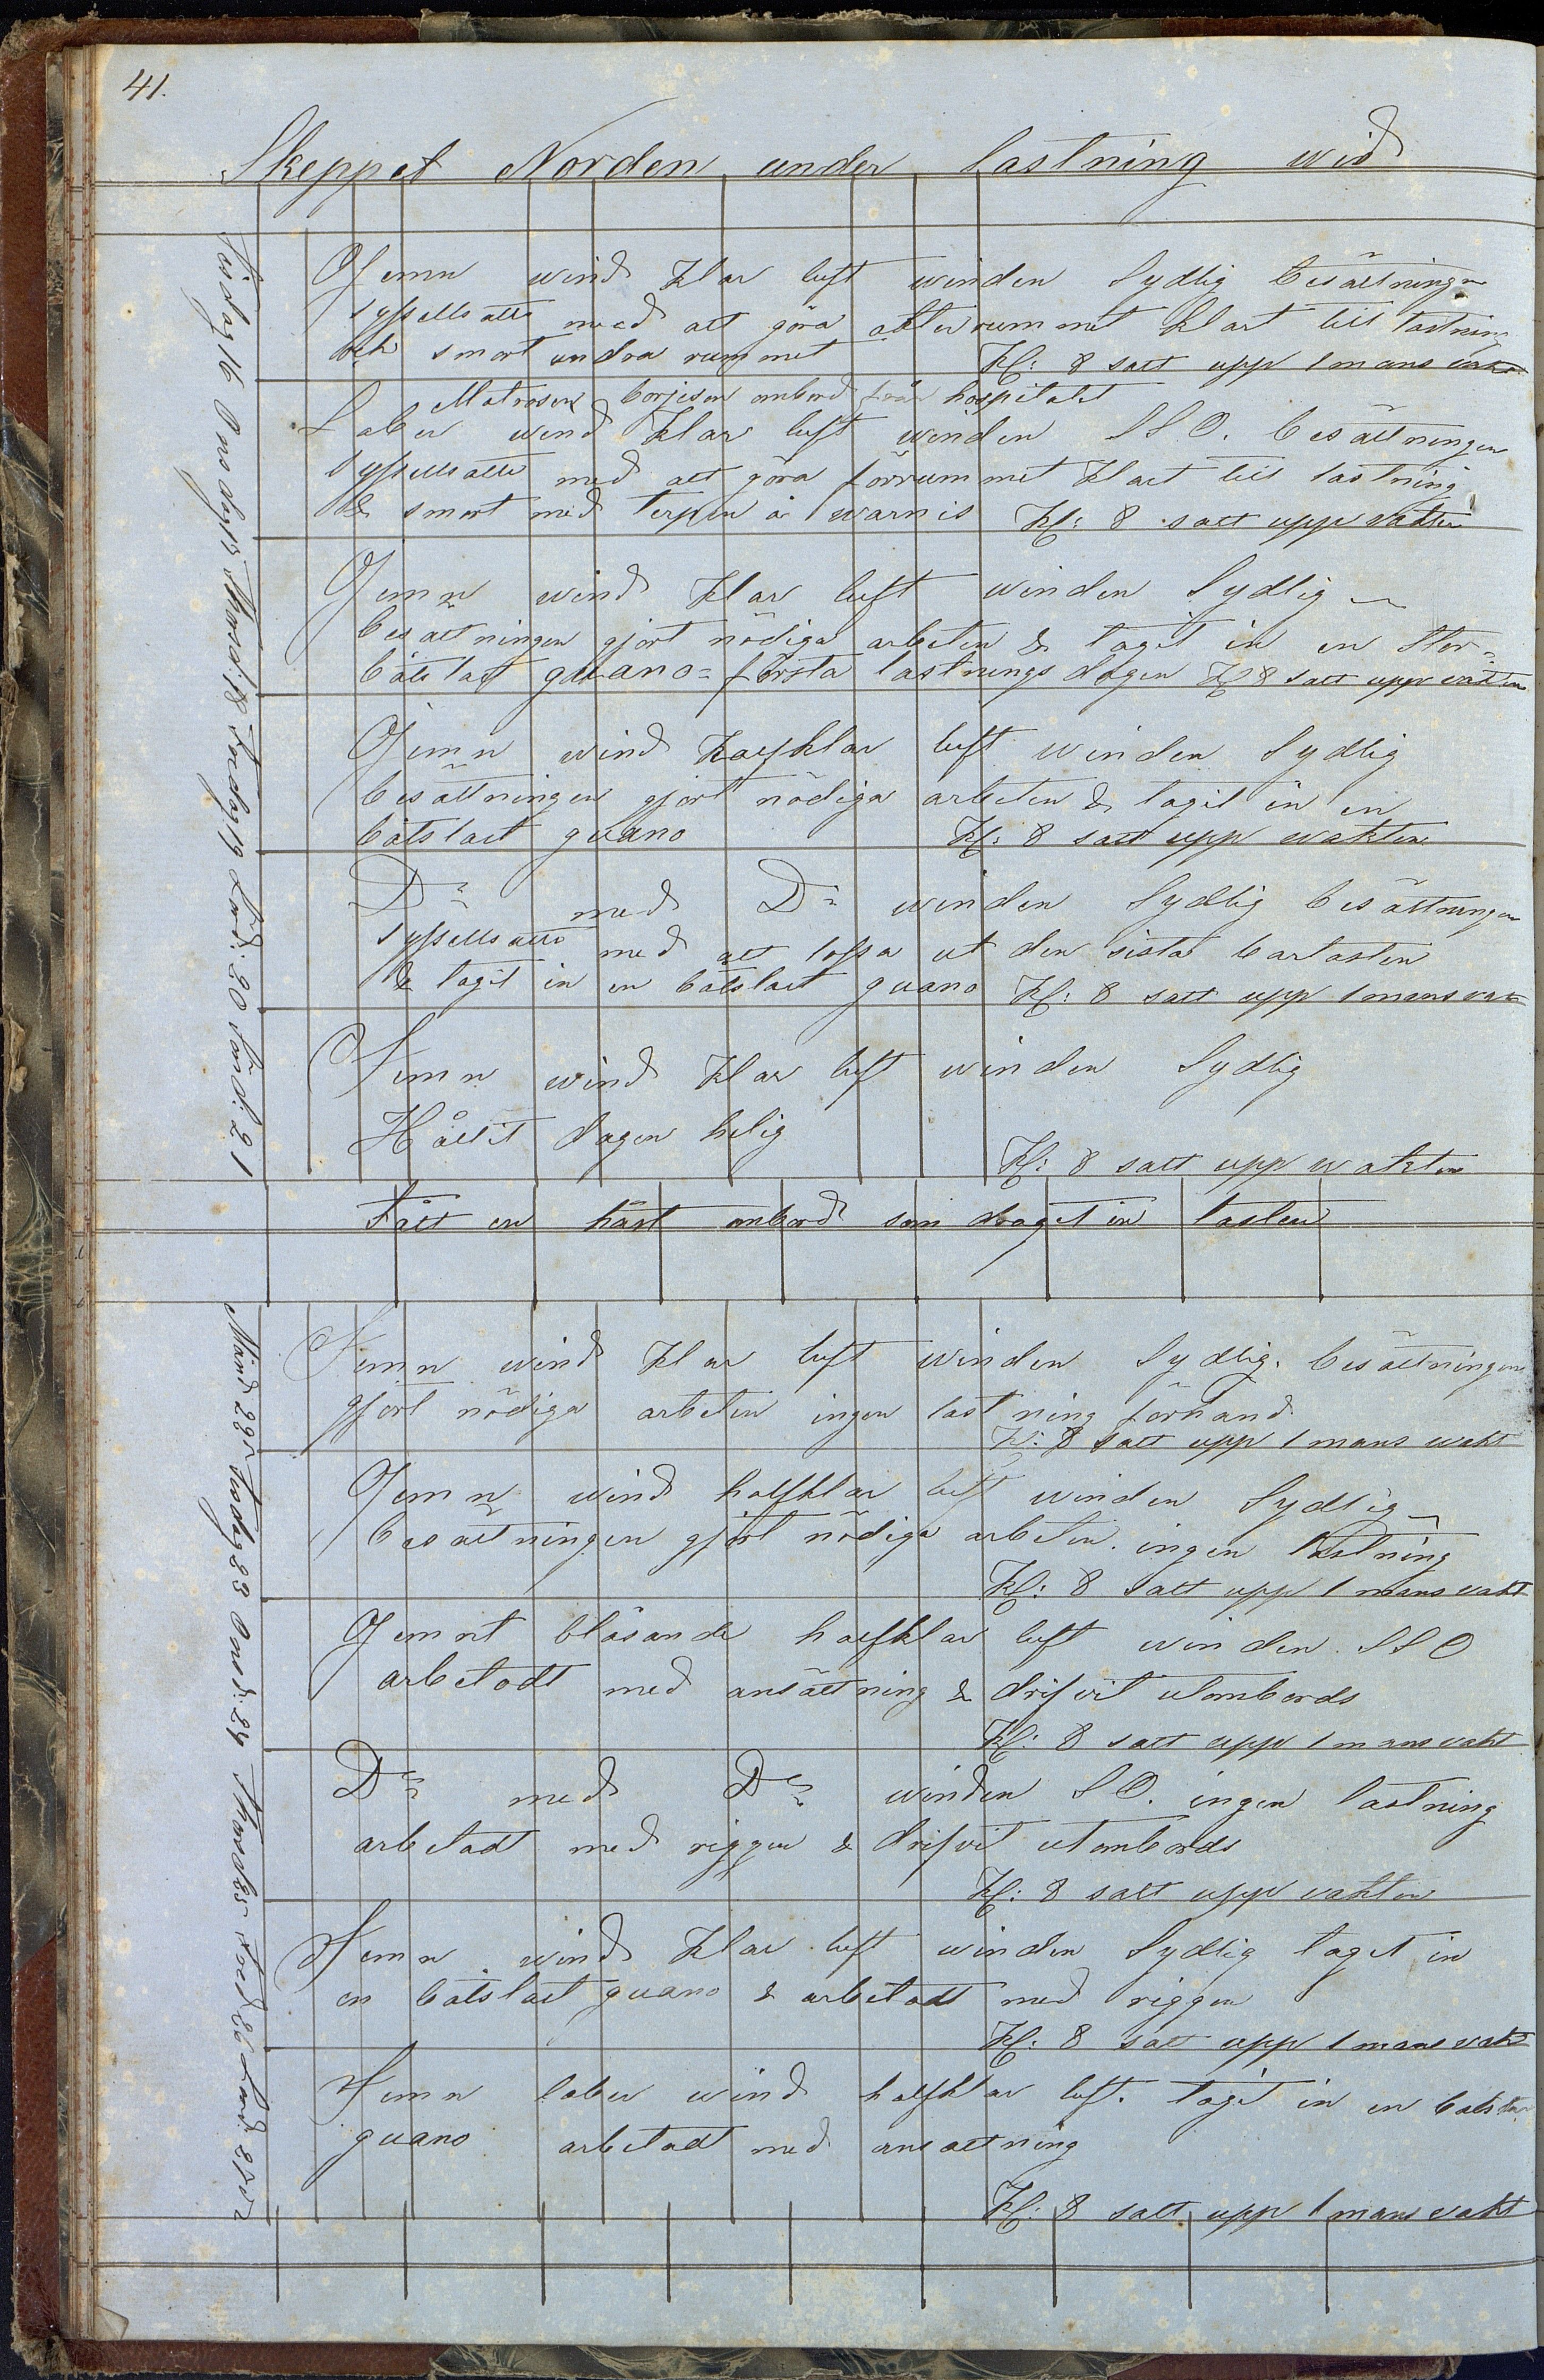 41.
Skeppet Norden under lastning wid
Tisdag 16 Onsdag 17 Thorsd: 18 Fredag 19 Lörd: 20 Sönd: 21
Jemn wind klar luft winden Sydlig besättningen
sysselsatts med att göra akterrummet klart till lastning
och smort undra rummet Kl: 8 satt upp 1 mans vakt
Matrosen Borjison ombord från hospitalet
Laber wind klar luft winden SSO. besättningen
sysselsatts med att göra förrummet klart till lastning
& smort med terpen å warnis Kl: 8 satt upp vakten
Jemn wind klar luft winden Sydlig
besättningen gjort nödiga arbeten & tagit in en stor
båtslast guano = första lastnings dagen Kl 8 satt upp vakten
Jemn wind halfklar luft winden Sydlig
besättningen gjort nödiga arbeten & tagit in en
båtslast guano Kl: 8 satt upp wakten
Do med Do winden Sydlig besättningen
sysselsatts med att lossa ut den sista barlasten
& tagit in en båtslast guano Kl: 8 satt upp 1 mans vakt
Jemn wind klar luft winden Sydlig
Hållit dagen helig
Kl: 8 satt upp wakten
Fått en häst ombord som draget in lasten
Månd 22 Tisdag 23 Onsd: 24 Thorsd 25 Fred 26 Lörd 27
Jemn wind klar luft winden Sydlig. besättningen
gjort nödiga arbeten ingen lastning förhand
Kl: 8 satt upp 1 mans wakt
Jemn wind halfklar luft winden Sydlig
besättningen gjort nödiga arbeten. ingen lastning
Kl: 8 satt upp 1 mans vakt
Jemnt blåsande halfklar luft winden SSO
arbetadt med ansättning & drifvit utombords
Kl: 8 satt upp 1 mans vakt
Do med Do winden SO. ingen lastning
arbetadt med riggen & drifvit utombords
Kl: 8 satt upp vakten
Jemn wind klar luft winden Sydlig taget in
en båtslast guano & arbetadt med riggen
Kl: 8 satt upp 1 mans vakt
Jemn laber wind halfklar luft. tagit in en båtslast
guano arbetadt med ansättning
Kl: 8 satt upp 1 mans vakt